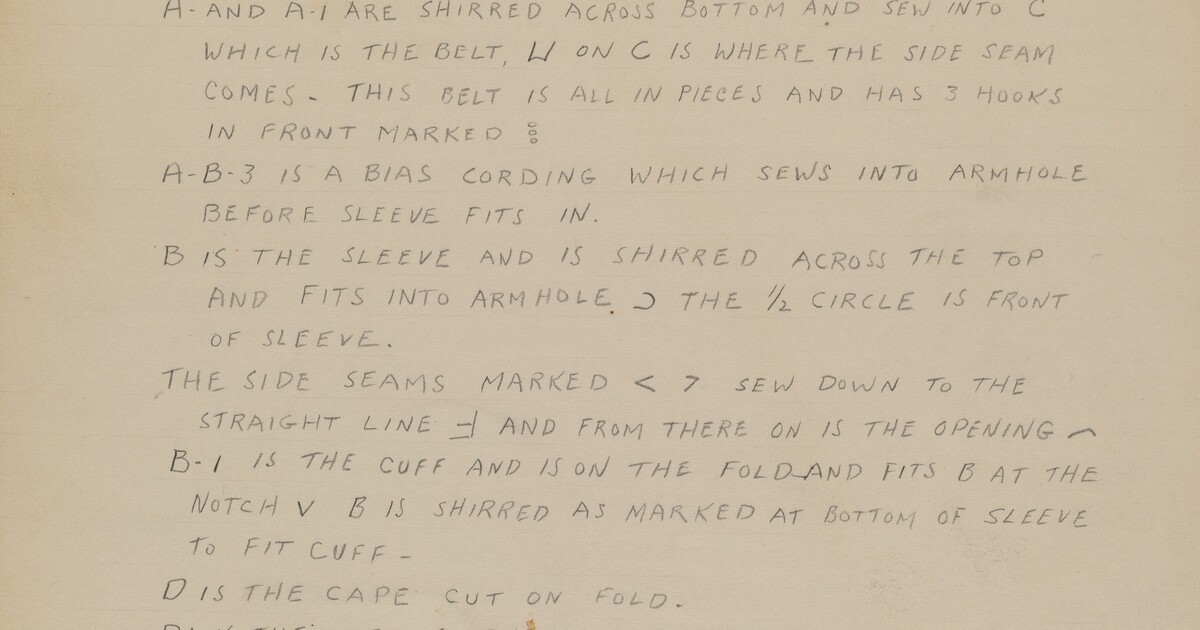 A- AND A-1 ARE SHIRRED ACROSS BOTTOM AND SEW INTO C
WHICH IS THE BELT, ⊔ ON C IS WHERE THE SIDE SEAM
COMES - THIS BELT IS ALL IN PIECES AND HAS 3 HOOKS
IN FRONT MARKED
A-B-3 IS A BIAS CORDING WHICH SEWS INTO ARMHOLE
BEFORE SLEEVE FITS IN.
B IS THE SLEEVE AND IS SHIRRED ACROSS THE TOP
AND FITS INTO ARMHOLE ⊃ THE 1/2 CIRCLE IS FRONT
OF SLEEVE.
THE SIDE SEAMS MARKED < > SEW DOWN TO THE
STRAIGHT LINE AND FROM THERE ON IS THE OPENING
B-1 IS THE CUFF AND IS ON THE FOLD AND FITS B AT THE
NOTCH V B IS SHIRRED AS MARKED AT BOTTOM OF SLEEVE
TO FIT CUFF -
D IS THE CAPE CUT ON FOLD.